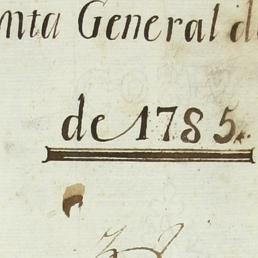 nta General d
de 1785.